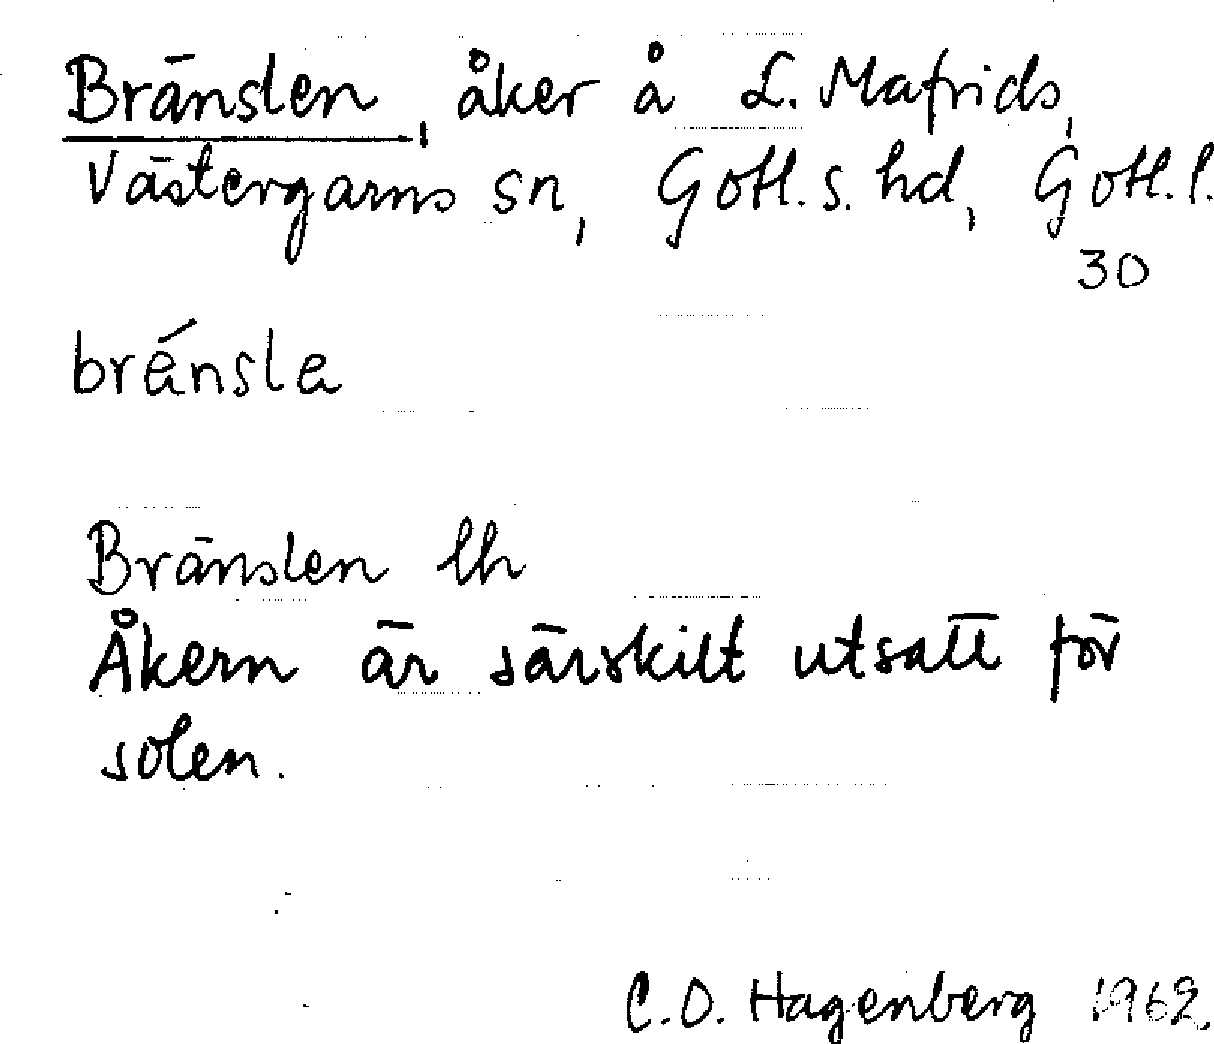 Bränslen, åker å L. Mafrids,
Västergarns sn, Gotl. s. hd, Gotl. l.
30
bränsla
Bränslen lh
Åkern är särskilt utsatt för
solen.
C.O. Hagenberg 1962.